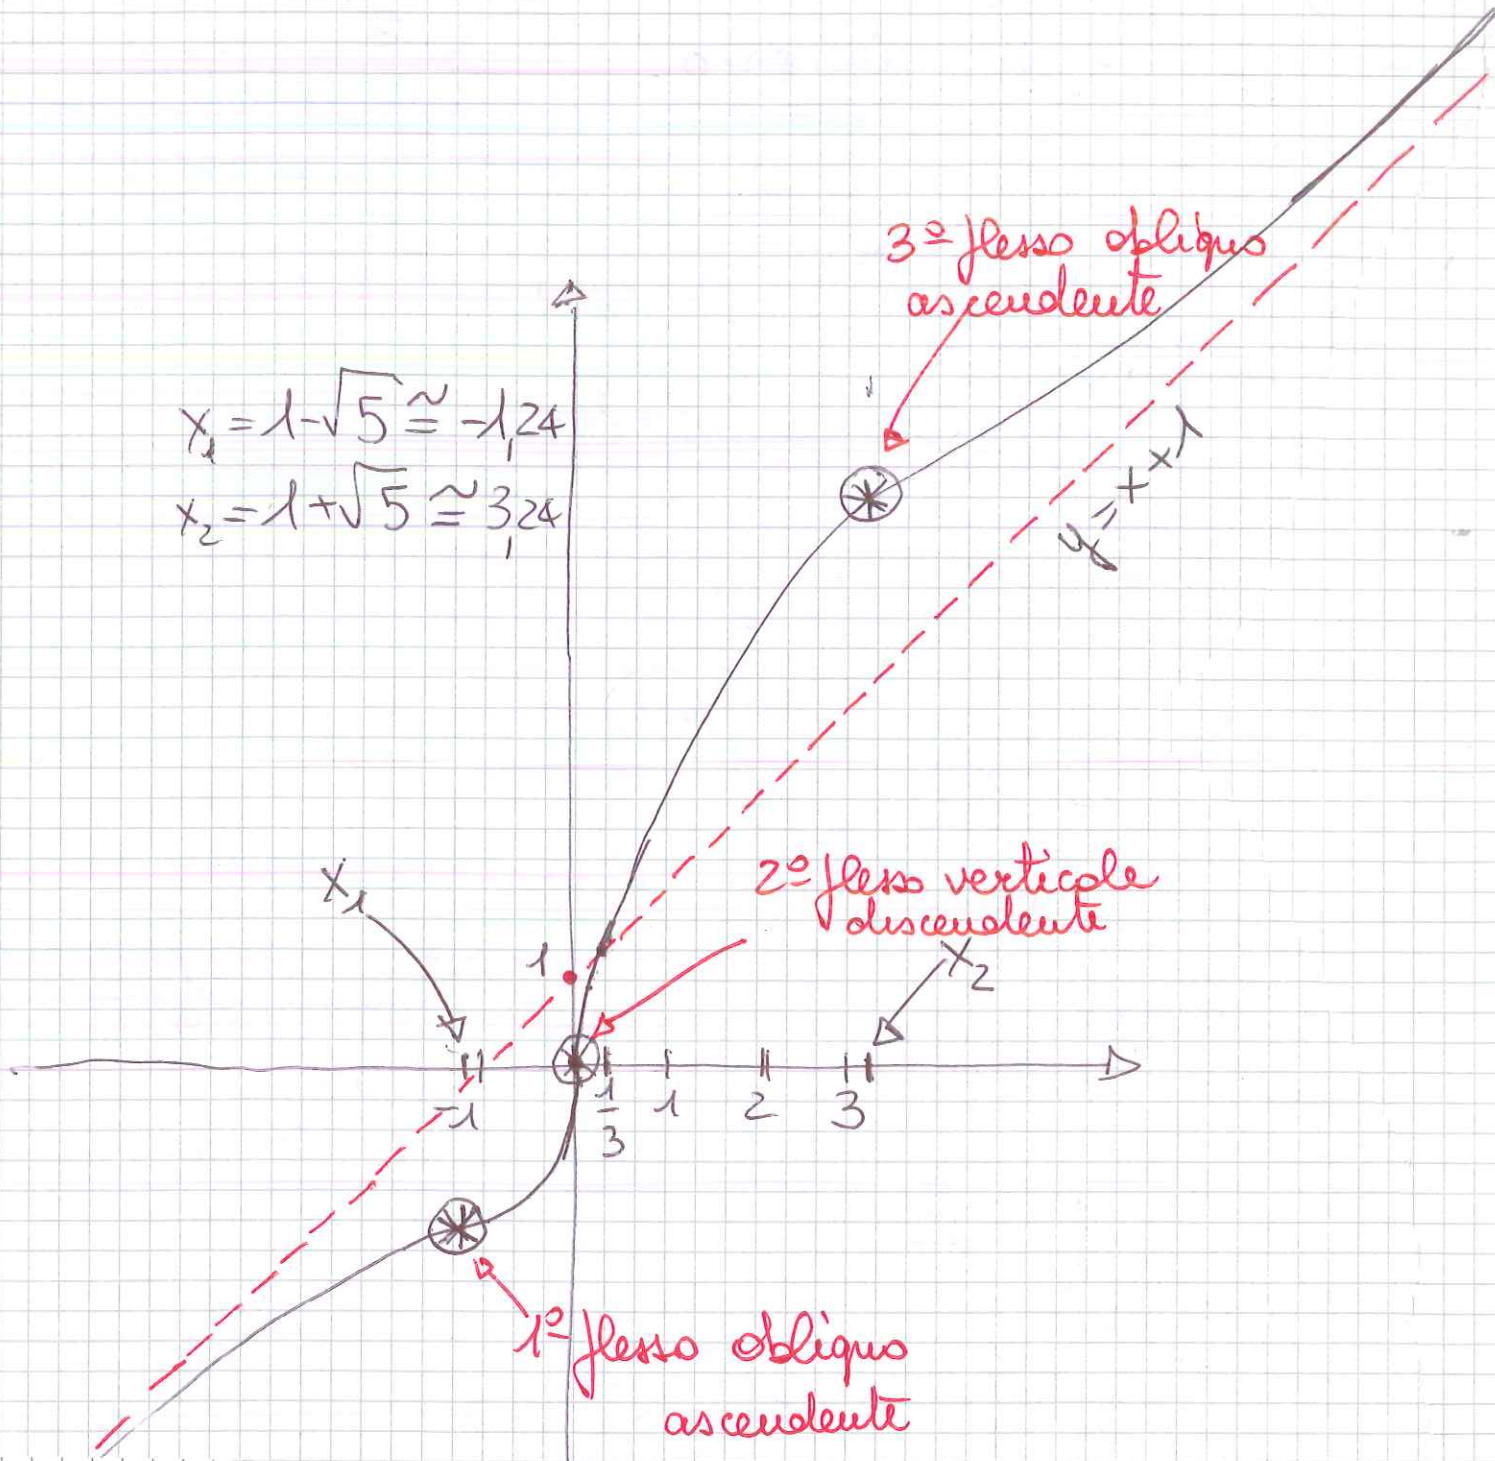 3º flesso obliquo
ascendente
x₁ = 1-√5 ≅ -1,24
x₂ = 1+√5 ≅ 3,24
y = x+1
x₁
2º flesso verticale
discendente
1
x₂
-1 1/3 1 2 3
1º flesso obliquo
ascendente